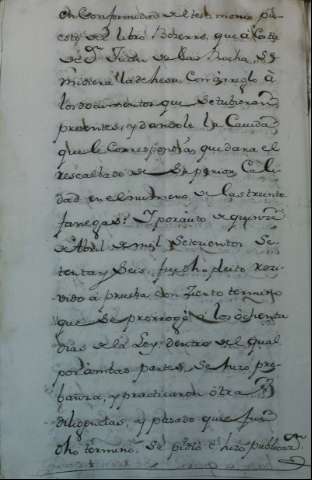 en Conformidad de el testimonio pu-
esto del libro Becerro, que a Costa
de Dn Juan de la Rocha, se
midiera la dehesa Con arreglo à
los documentos que se tubieran
presentes, y dandole la Cavida
que le Correspondía, quedara el
rescaldado de Superior Cali
dad en el numero de las treinta
fanegas: Y por auto de quinze
de Abril de mil Setecientos Se-
tenta y Seis, fue dho pleito rezi-
vido à prueba con Zierto termino
que se prorrogó à los ochenta
dias de la Ley, dentro del qual
por ambas partes, se hizo pro
banza, y practicaron otras
diligencias, y pasado que fue
dho termino, se pidió è hizo publicazn.